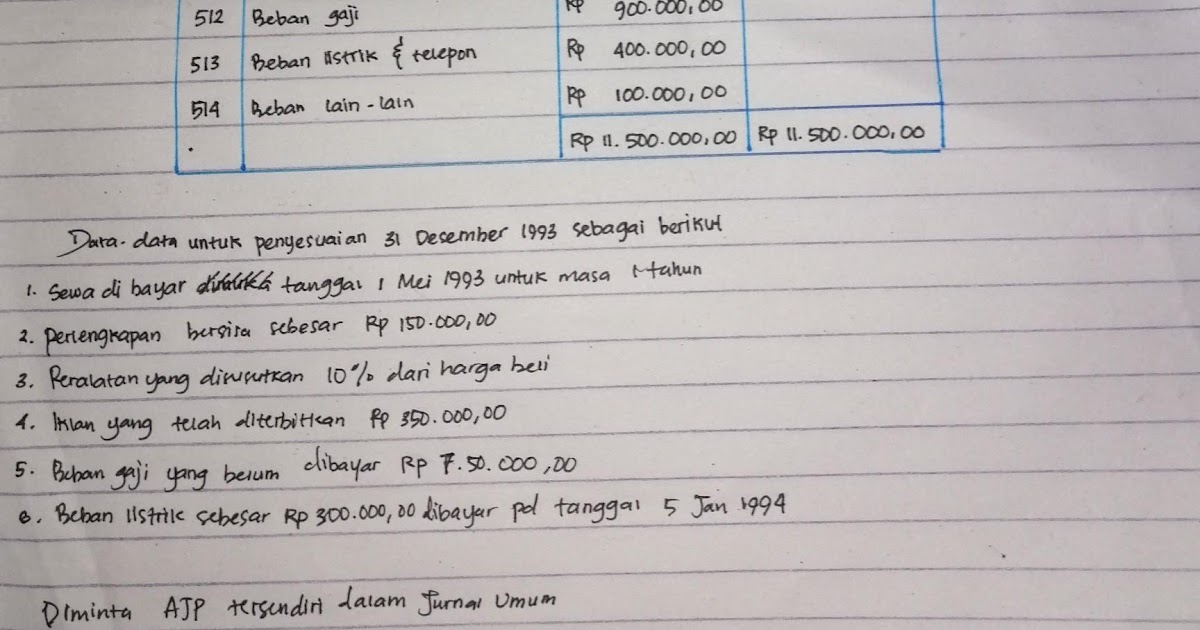 512 Beban gaji Rp 900.000,00
513 Beban listrik & telepon Rp 400.000,00
514 Beban lain-lain Rp 100.000,00
. Rp 11.500.000,00 Rp 11.500.000,00
Data-data untuk penyesuaian 31 Desember 1993 sebagai berikut
1. Sewa di bayar tanggal 1 Mei 1993 untuk masa 1 tahun
2. Perlengkapan bersisa sebesar Rp 150.000,00
3. Peralatan yang disusutkan 10% dari harga beli
4. Iklan yang telah diterbitkan Rp 350.000,00
5. Beban gaji yang belum dibayar Rp 7.50.000,00
6. Beban listrik sebesar Rp 300.000,00 dibayar pd tanggal 5 Jan 1994
Diminta AJP tersendiri dalam Jurnal Umum